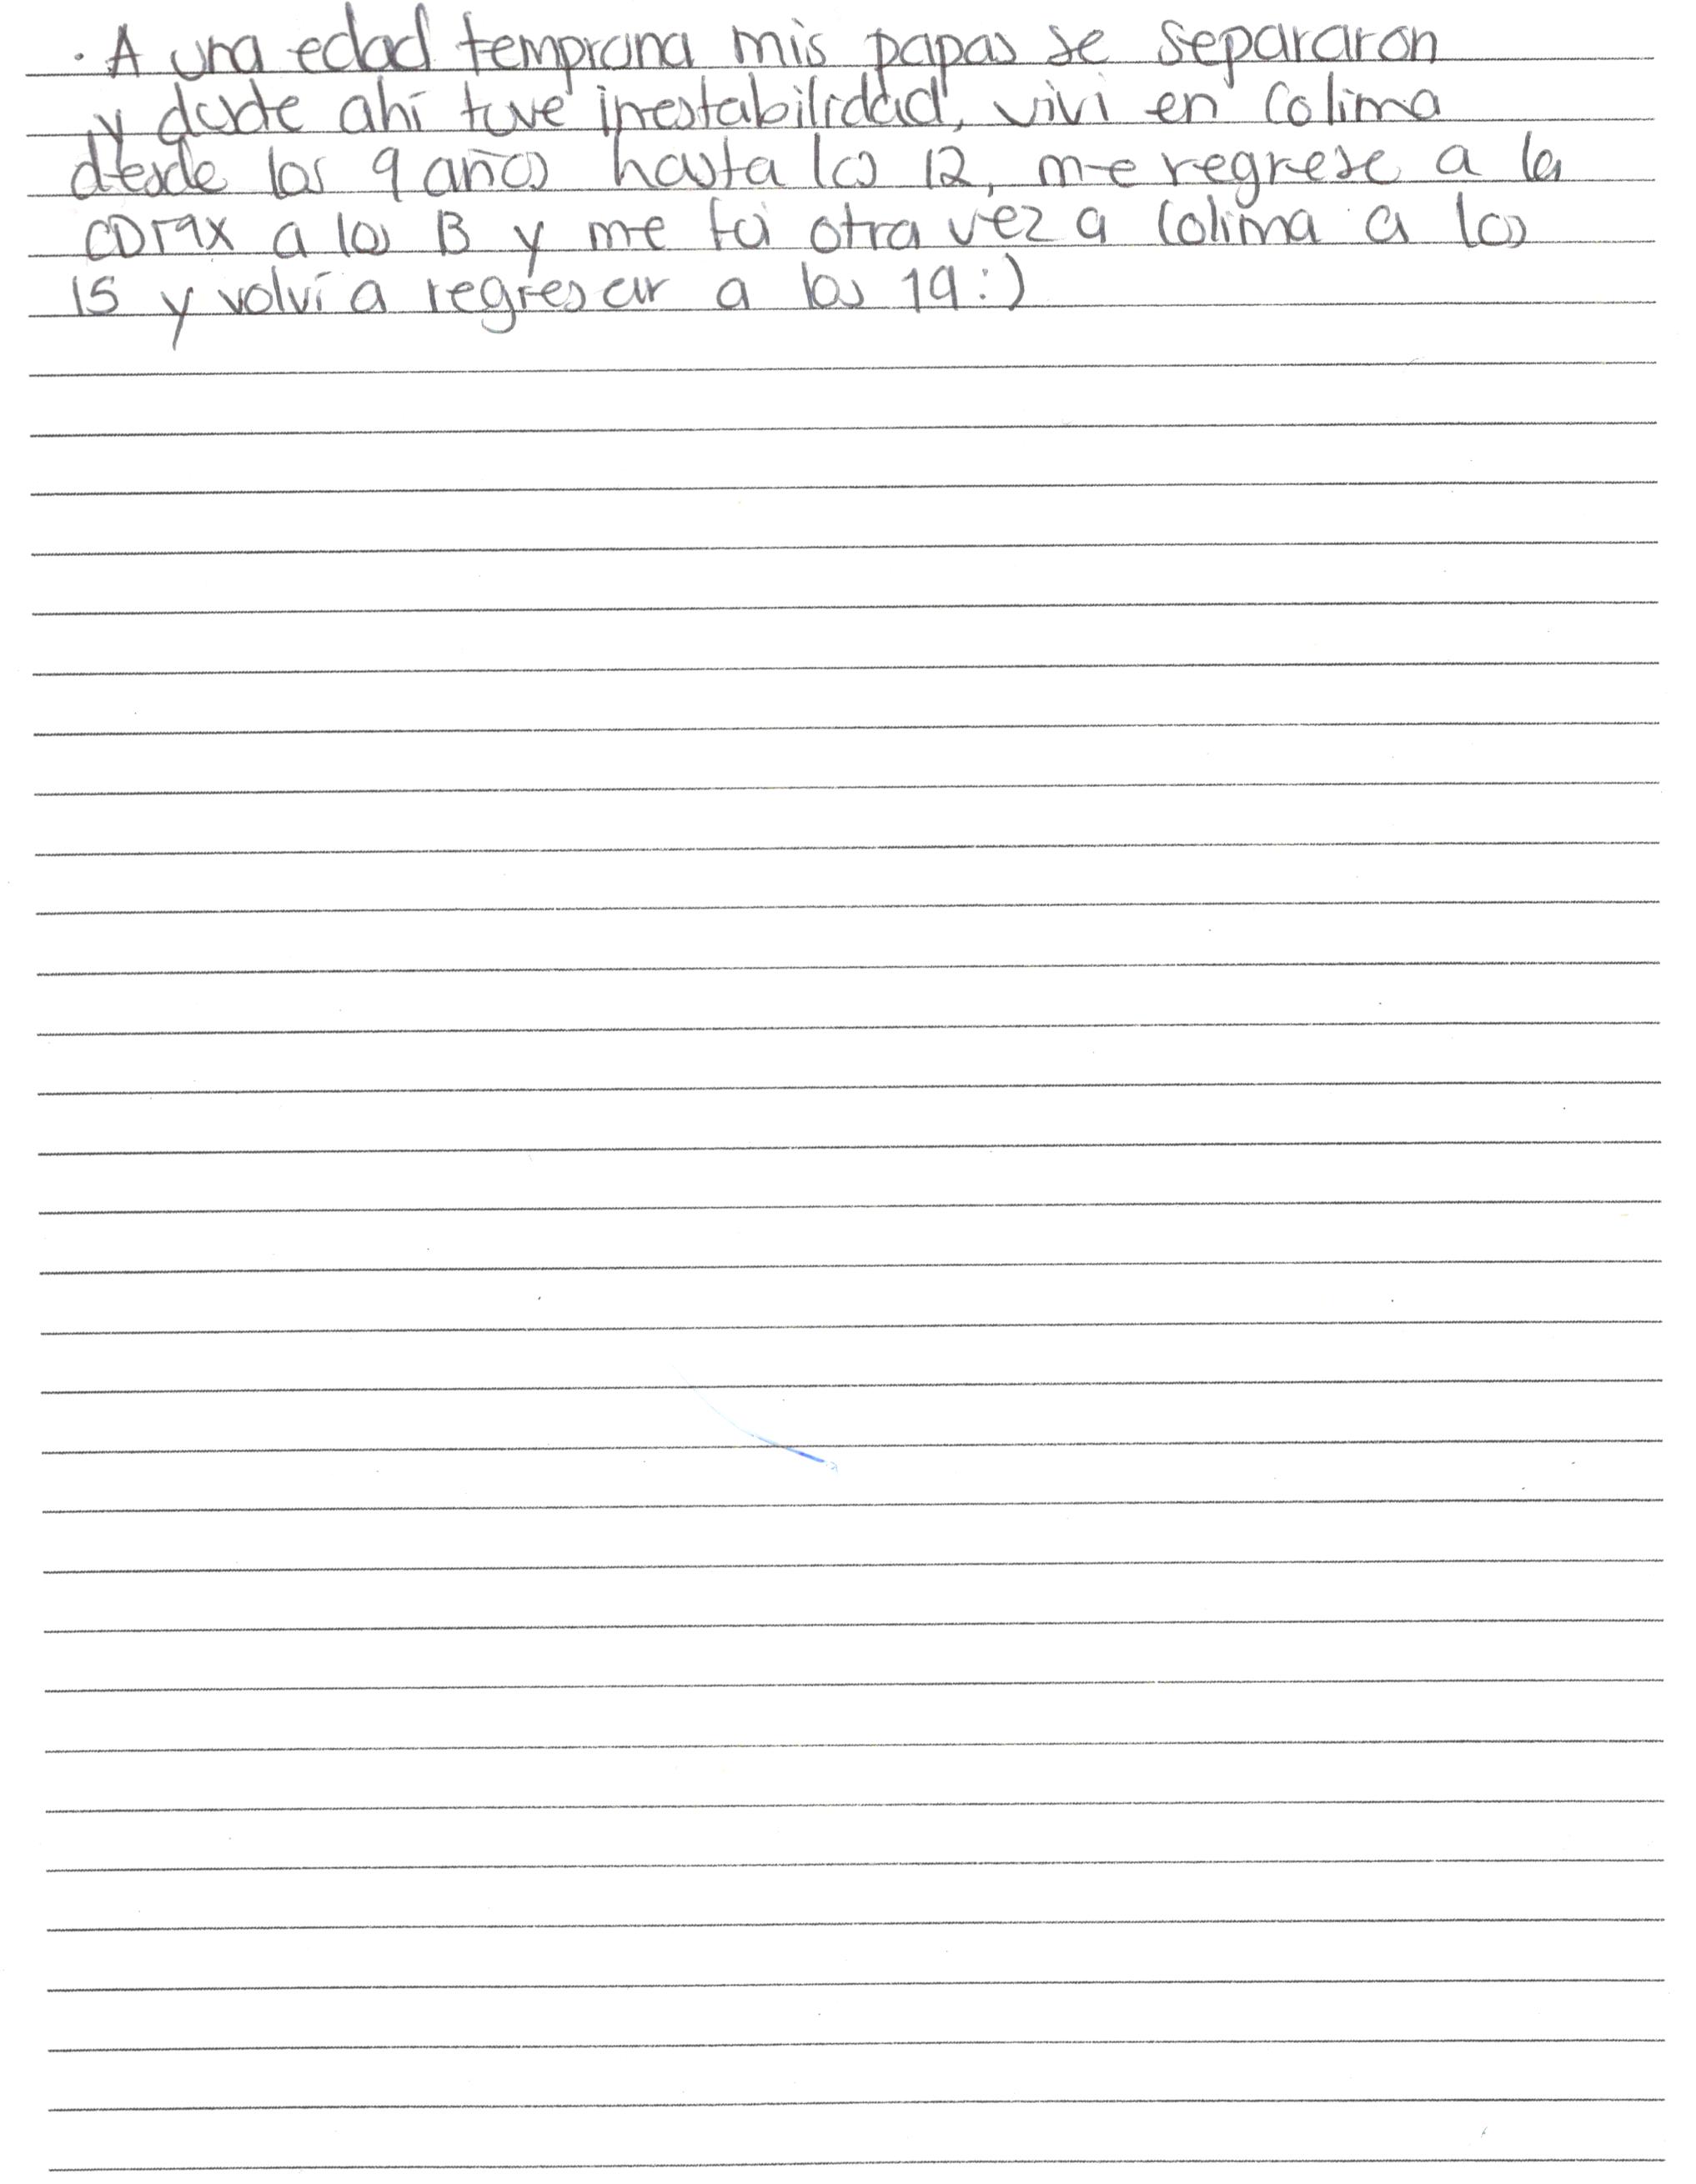 · A una edad temprana mis papas se separaron
y desde ahí tuve inestabilidad, vivi en Colima
desde los 9 años hasta los 12, me regrese a la
CDMX a los 13 y me fui otra vez a Colima a los
15 y volví a regresar a los 19:)